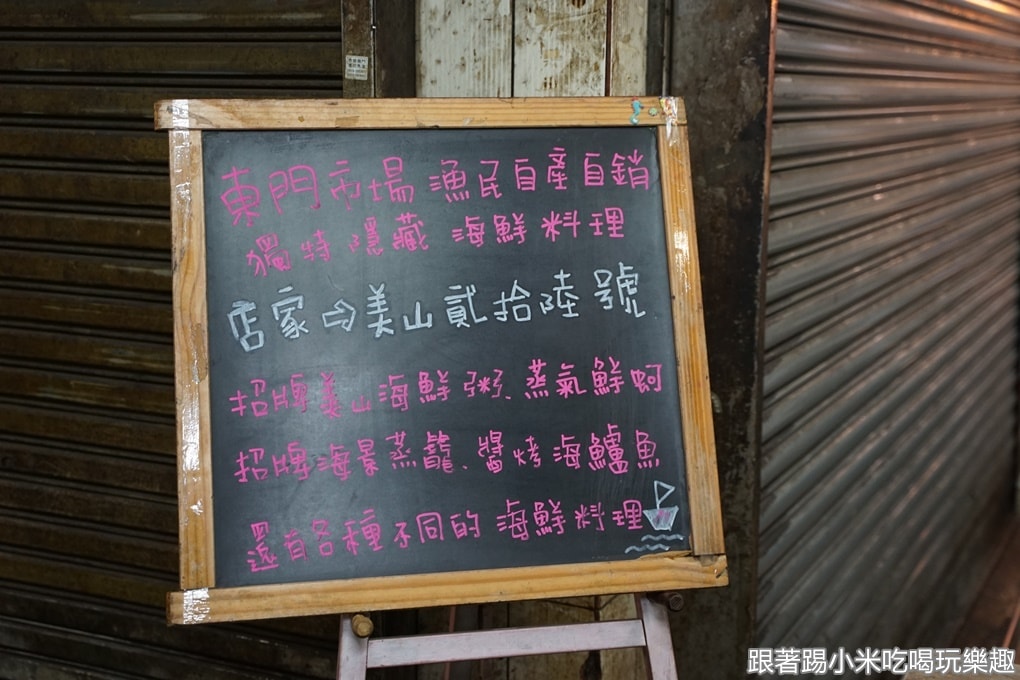 東門市場 漁民自產自銷
獨特隱藏 海鮮料理
店家⇨美山貳拾陸號
招牌美山海鮮粥、蒸氣鮮蚵
招牌海景蒸籠、醬烤海鱸魚
還有各種不同的海鮮料理
跟著踢小米吃喝玩樂趣